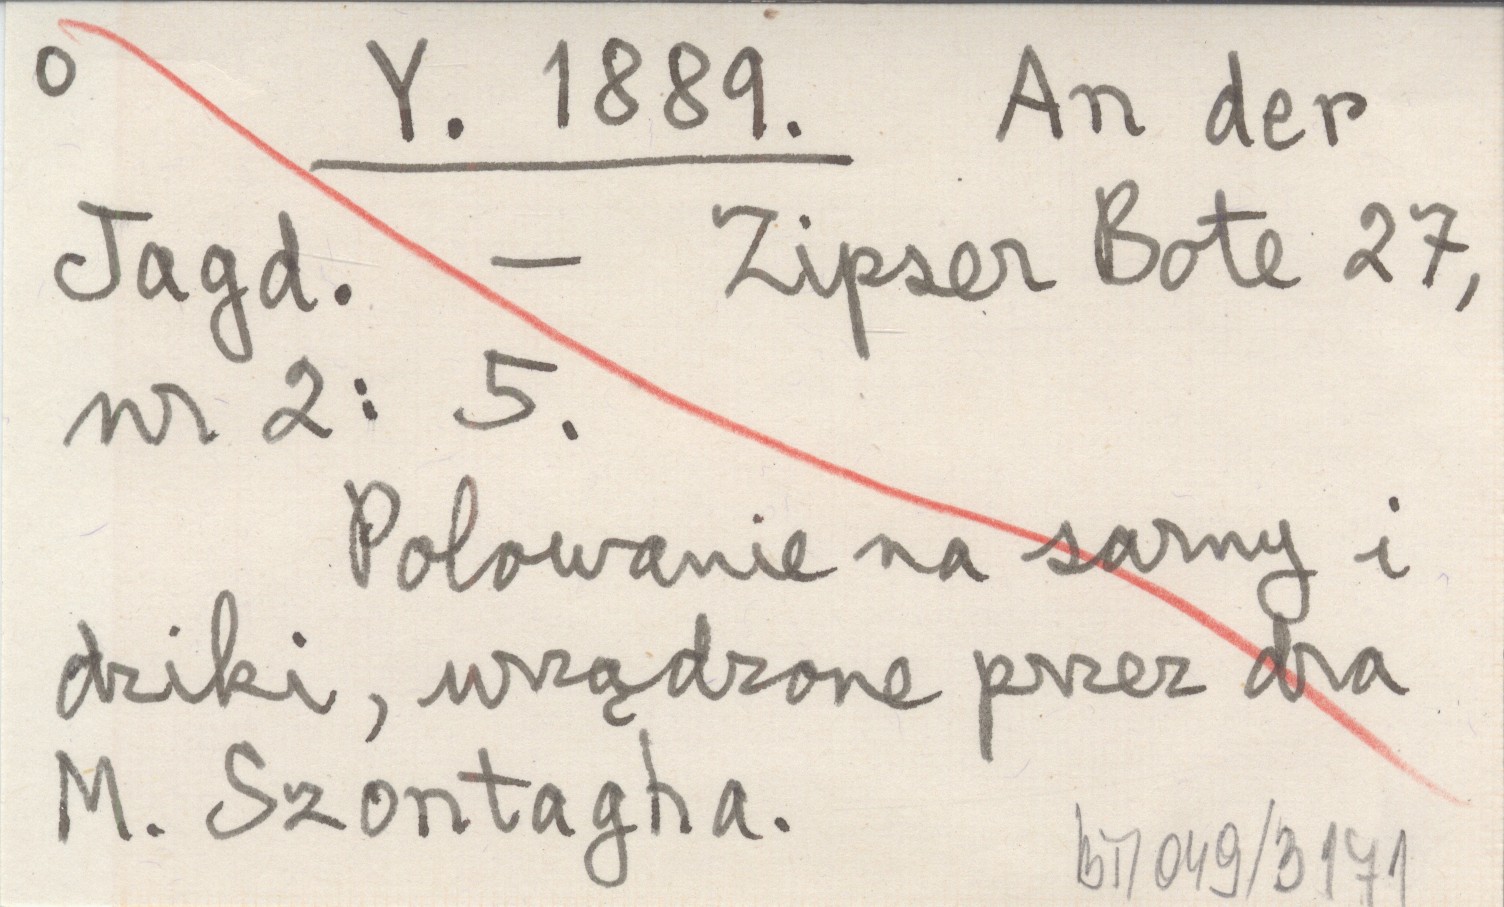 o Y. 1889. An der
Jagd. — Zipser Bote 27,
nr 2: 5.
Polowanie na sarny i
dziki, urządzone przez dra
M. Szontagha.
BT/049/3171